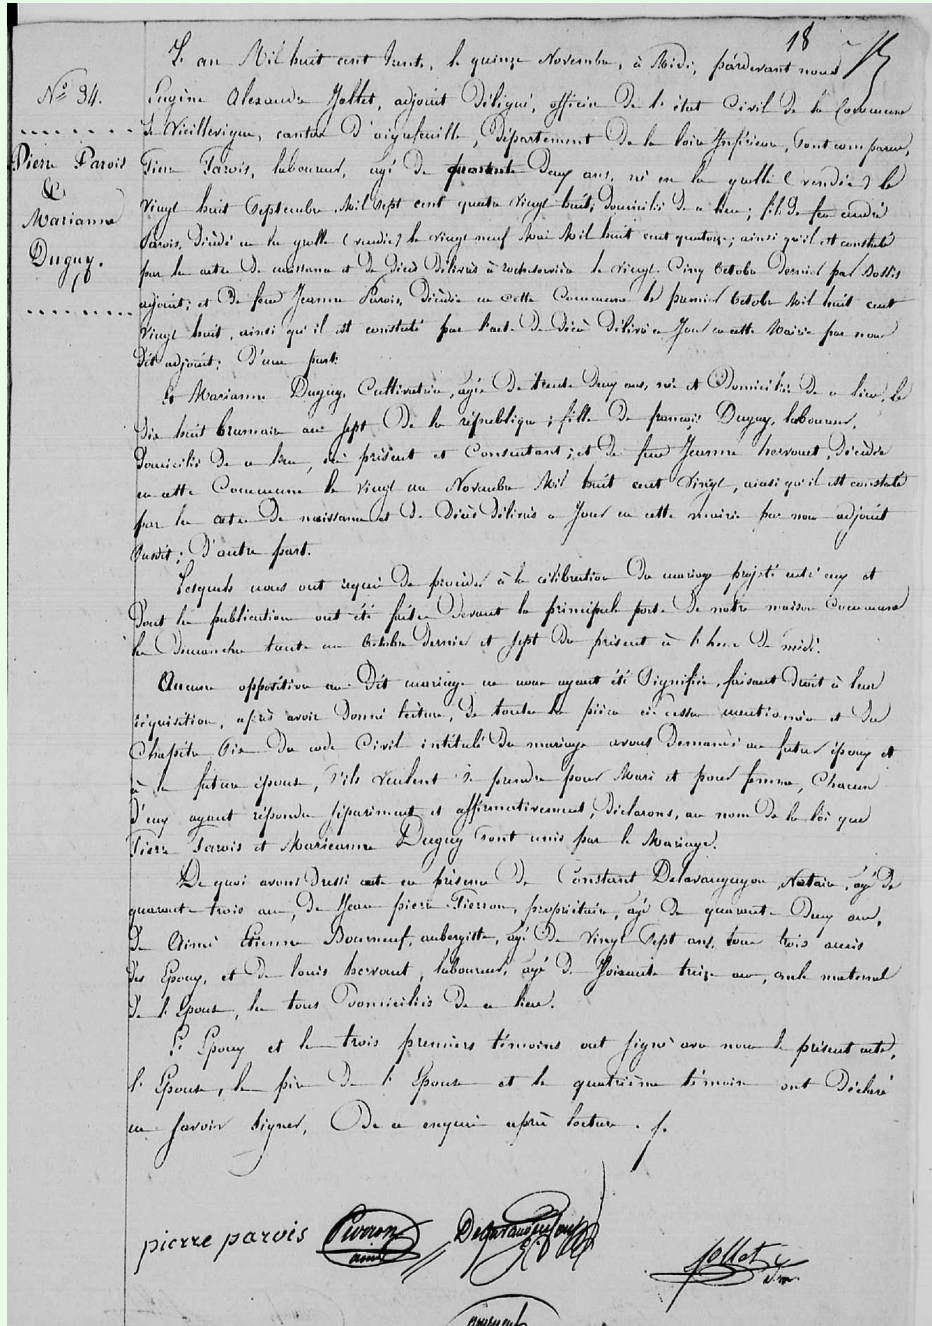 18
N° 34.
Pierre Parois
&
Marianne
Duguy.
L'an Mil huit cent trente, le quinze Novembre, à Midi, pardevant nous
Eugène Alexandre Jollet, adjoint délégué, officier de l'état Civil de la Commune
de Vieillevigne, canton d'aigrefeuille, département de la loire Inférieure, sont comparus,
Pierre Parois, laboureur, agé de quarante Deux ans, né en la grolle (vendée) le
Vingt huit Septembre Mil Sept cent quatre vingt huit, domicilié de ce lieu; fils de feu andré
Parois, Décédé en la grolle (vendée) le vingt neuf Mai Mil huit cent quatorze; ainsi qu'il est constaté
par les actes de naissance et de Décès délivrés à rocheservière le vingt Cinq Octobre Dernier par
adjoint; et de feue Jeanne Parois, Décédée en cette Commune le premier Octobre Mil huit cent
Vingt huit, ainsi qu'il est constaté par l'acte de Décès Délivré ce Jour en cette Mairie par nous
dit adjoint; D'une part.
Et Marianne Duguy, Cultivatrice, agée De trente Deux ans, née et Domiciliée De ce lieu, le
dix huit brumaire an sept De la république; fille De françois Duguy, laboureur,
Domicilié De ce lieu, ici présent et Consentant; et De feue Jeanne hervouet, Décédée
en cette Commune le Vingt un Novembre Mil huit cent Vingt, ainsi qu'il est constaté
par les actes De naissance et de Décès délivrés ce Jour en cette mairie par nous adjoint
susdit; D'autre part.
Lesquels nous ont requis De procéder à la célébration Du mariage projeté entr'eux et
Dont les publications ont été faites Devant la principale porte De notre maison Commune
les Dimanches trente un Octobre Dernier et sept Du présent à l'heure De midi.
Aucune opposition au Dit mariage ne nous ayant été Signifiée, faisant Droit à leur
réquisition, après avoir Donné lecture, De toutes les pièces ci-dessus mentionnées et Du
Chapitre Six Du code Civil intitulé Du mariage avons Demandé au futur époux et
à la future épouse, s'ils veulent se prendre pour Mari et pour femme, Chacun
D'eux ayant répondu séparément et affirmativement, Déclarons, au nom De la loi que
Pierre Parois et Marieanne Duguy sont unis par le Mariage.
De quoi avons Dressé acte en présence De Constant Delavauguyon, Notaire, agé De
quarante trois ans, De Jean pierre Pierron, propriétaire, agé De quarante Deux ans,
De Aimé Etienne Bourneuf, aubergiste, agé De Vingt Sept ans, tous trois amis
Des Epoux, et De louis hervouet, laboureur, agé De Soixante treize ans, oncle maternel
De l'Epouse, les tous Domiciliés De ce lieu.
L'Epoux et les trois premiers témoins ont signé avec nous le présent acte,
l'Epouse, le père De l'Epouse et le quatrième témoin ont Déclaré
ne savoir Signer, De ce enquis après lecture. /.
pierre parvois Pierron Delavauguyon
ainé
Jollet